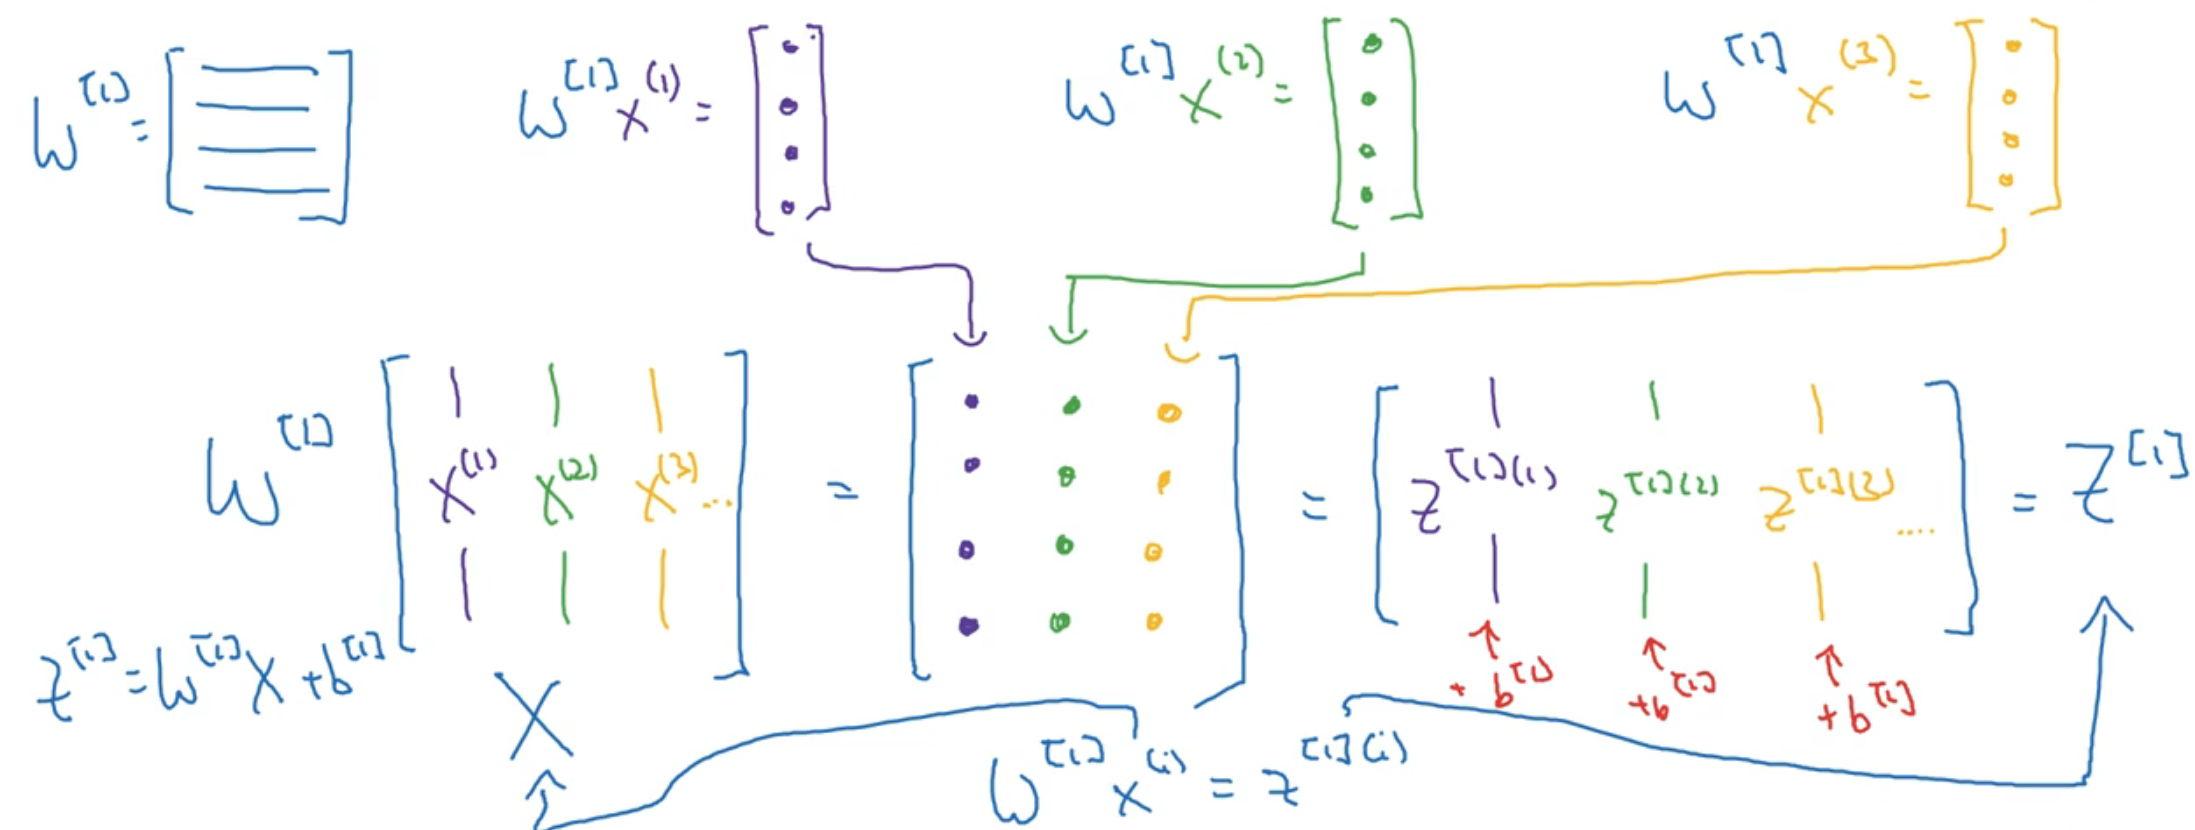 W^[1] = [ ]
W^[1] x^(1) = [ ]
W^[1] x^(2) = [ ]
W^[1] x^(3) = [ ]
W^[1] [ x^(1) x^(2) x^(3) ... ] = [ ] = [ z^[1](1) z^[1](2) z^[1](3) .... ] = Z^[1]
+ b^[1] + b^[1] + b^[1]
z^[1] = W^[1] X + b^[1]
X
W^[1] x^(i) = z^[1](i)